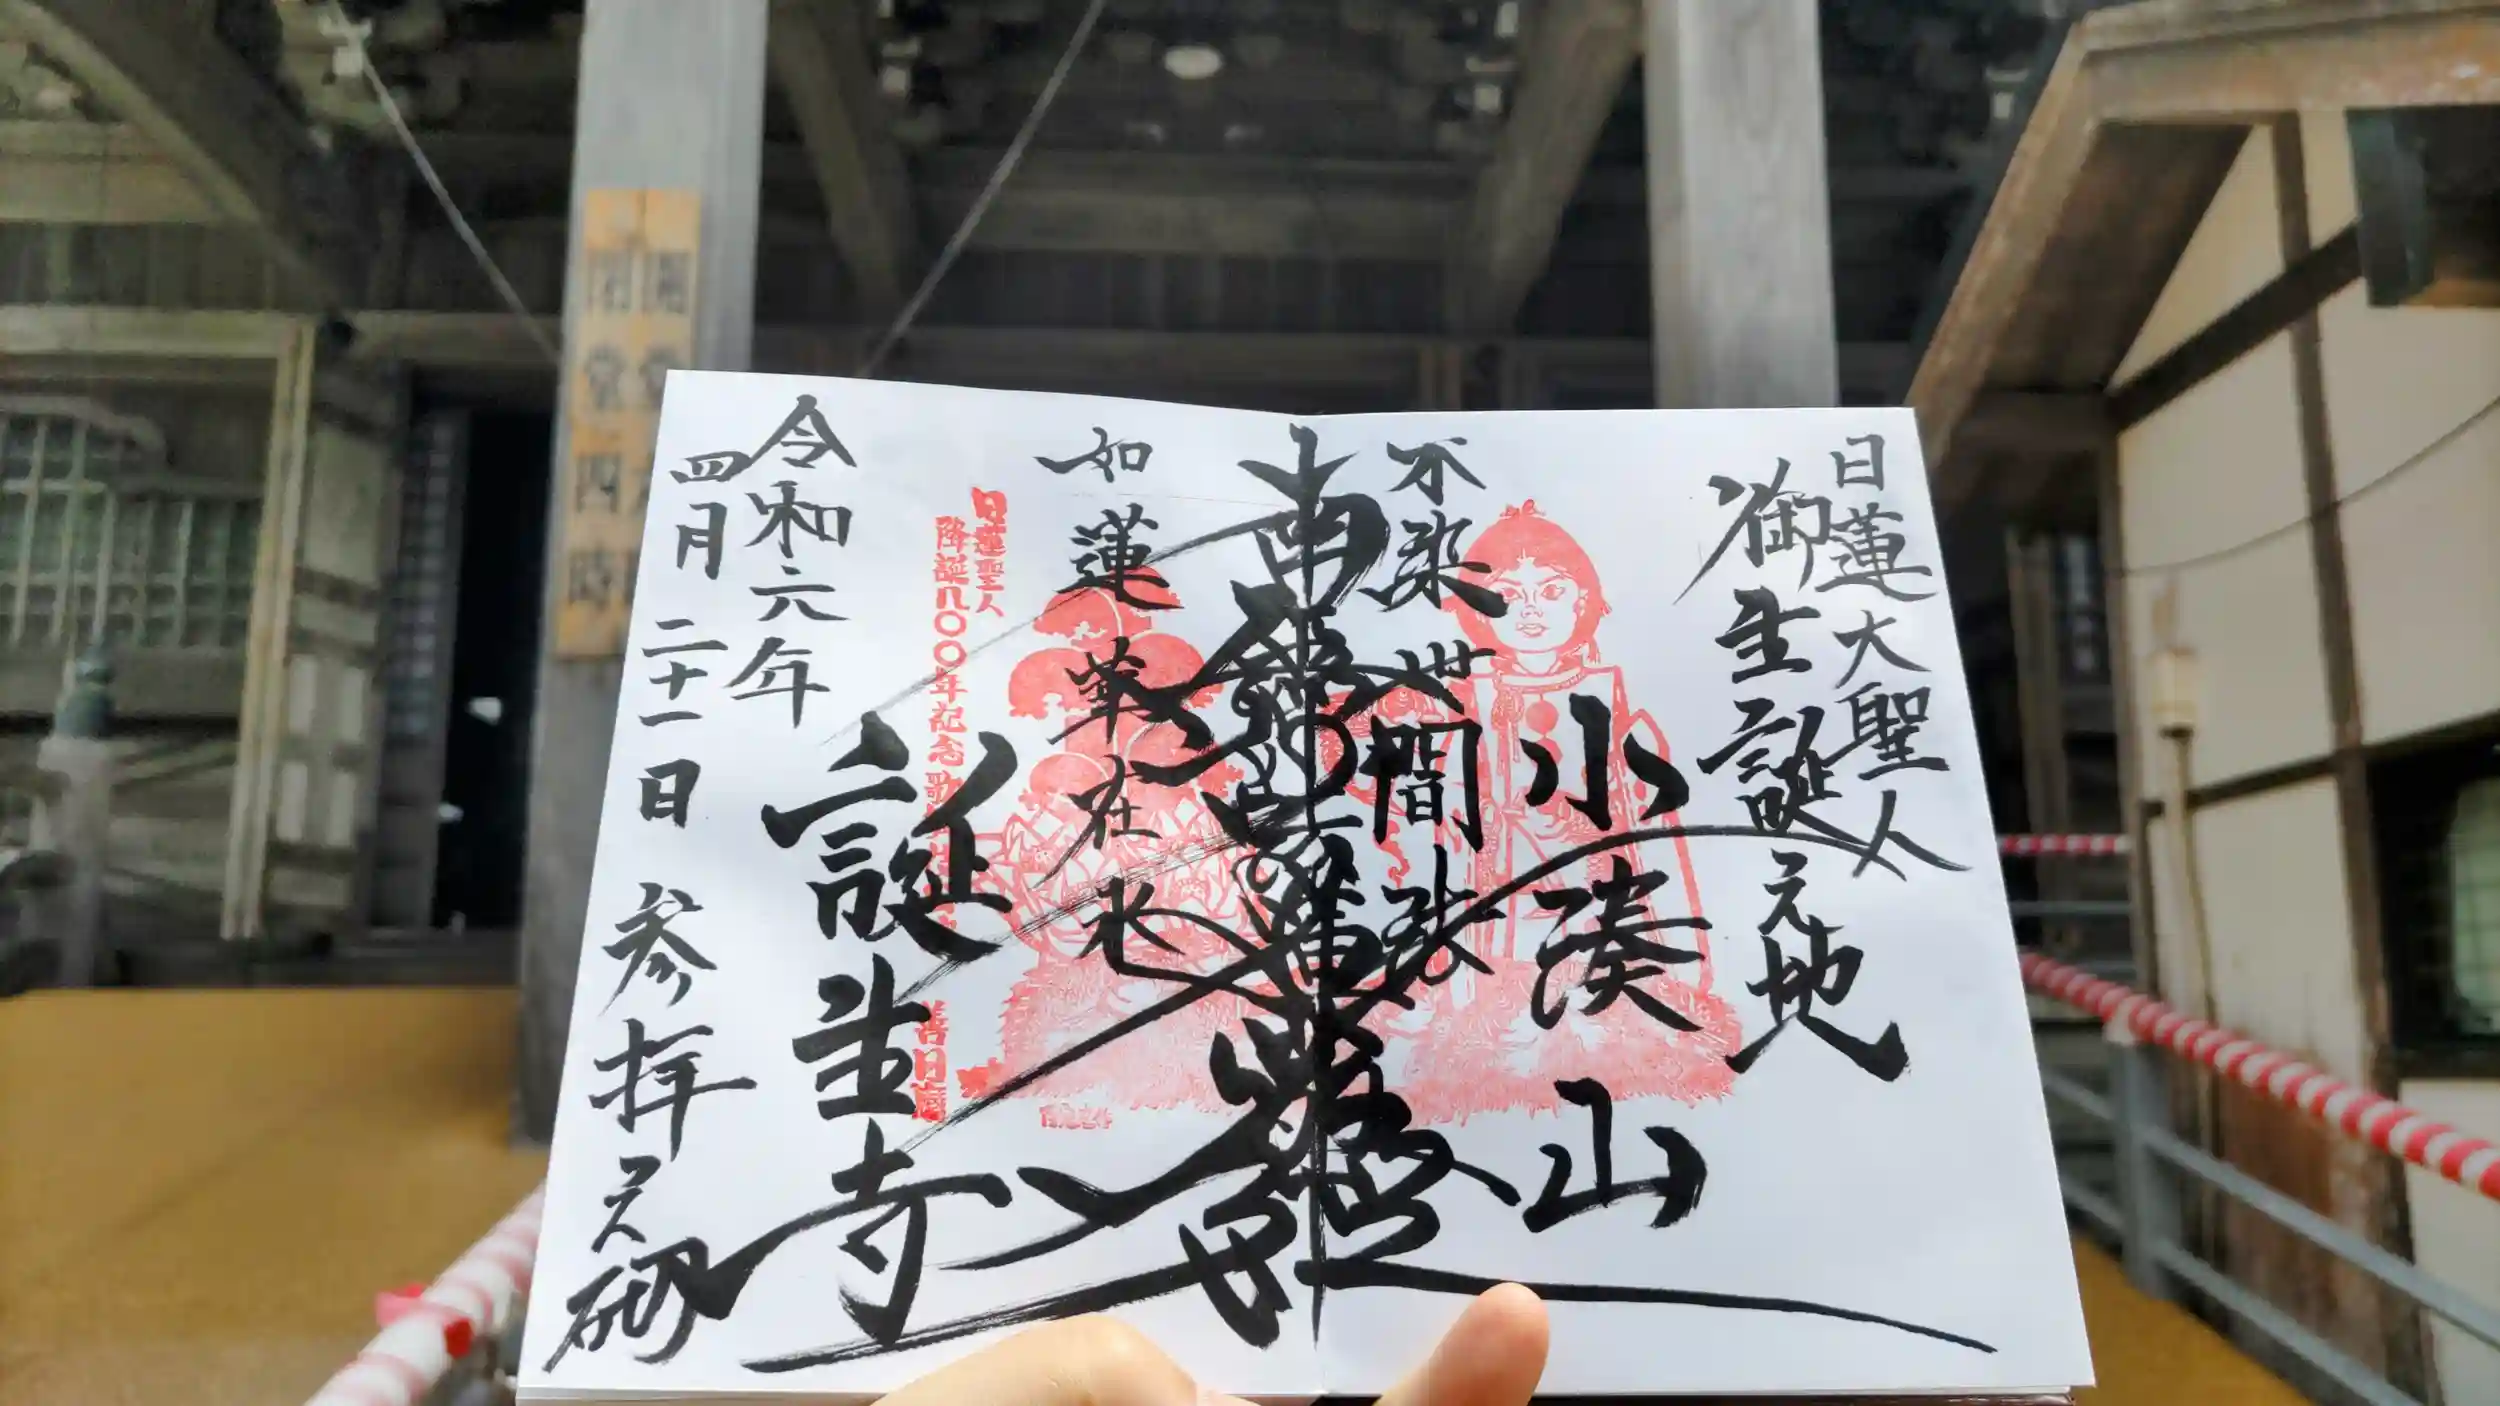 日蓮大聖人
御生誕之地
小湊山
不染世間法
南無妙法蓮華経
如蓮華在水
日蓮聖人
降誕八〇〇年記念歌
善日麿
誕生寺
令和六年
四月二十一日 参拝之砌
閉堂四時